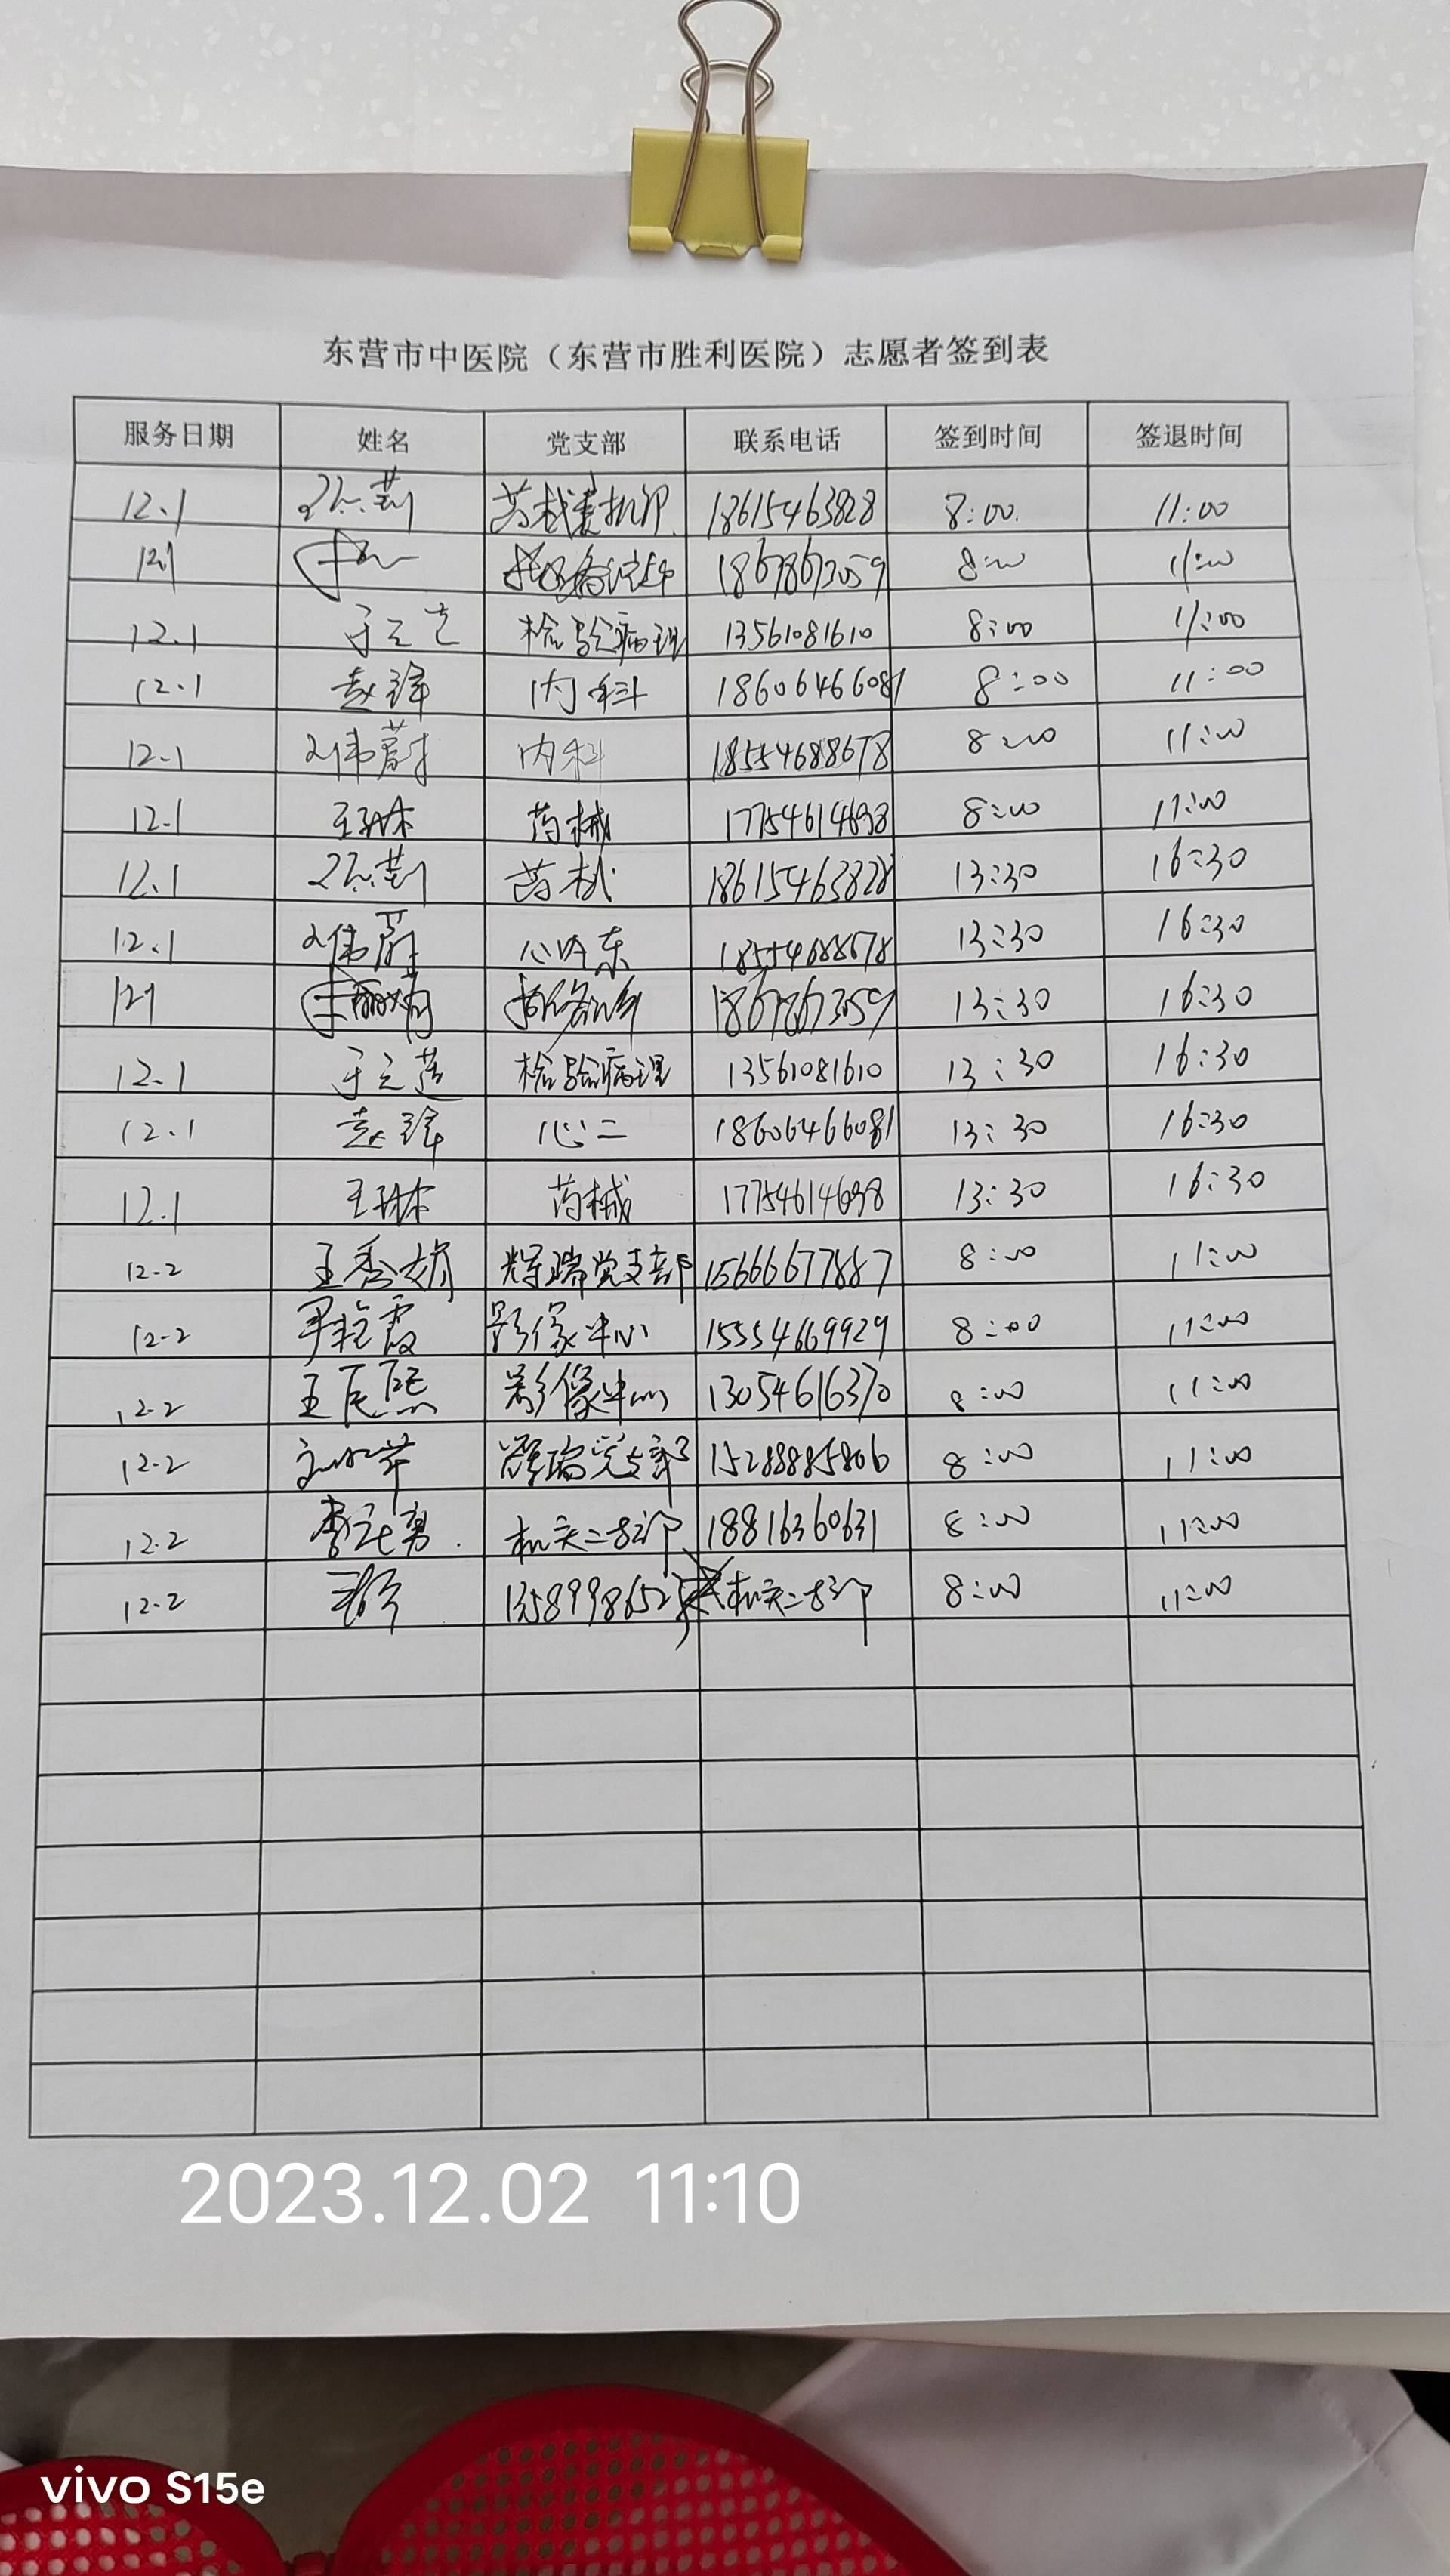 东营市中医院（东营市胜利医院）志愿者签到表
服务日期 姓名 党支部 联系电话 签到时间 签退时间
12.1 18615463828 8:00. 11:00
12.1 18678673059 8:00 11:00
12.1 检验病理 13561081610 8:00 11:00
12.1 内科 18606466081 8:00 11:00
12.1 刘伟蔚 内科 18554688678 8:00 11:00
12.1 王琳 药械 17754614698 8:00 11:00
12.1 药械 18615463828 13:30 16:30
12.1 刘伟蔚 18554688678 13:30 16:30
12.1 18678673059 13:30 16:30
12.1 于之莲 检验病理 13561081610 13:30 16:30
12.1 心二 18606466081 13:30 16:30
12.1 王琳 药械 17754614698 13:30 16:30
12.2 王秀娟 辉瑞党支部 15666677887 8:00 11:00
12.2 尹艳霞 影像中心 15554669929 8:00 11:00
12.2 影像中心 13054616370 8:00 11:00
12.2 党支部 15288885806 8:00 11:00
12.2 机关二支部 18816360631 8:00 11:00
12.2 机关二支部 8:00 11:00
2023.12.02 11:10
vivo S15e